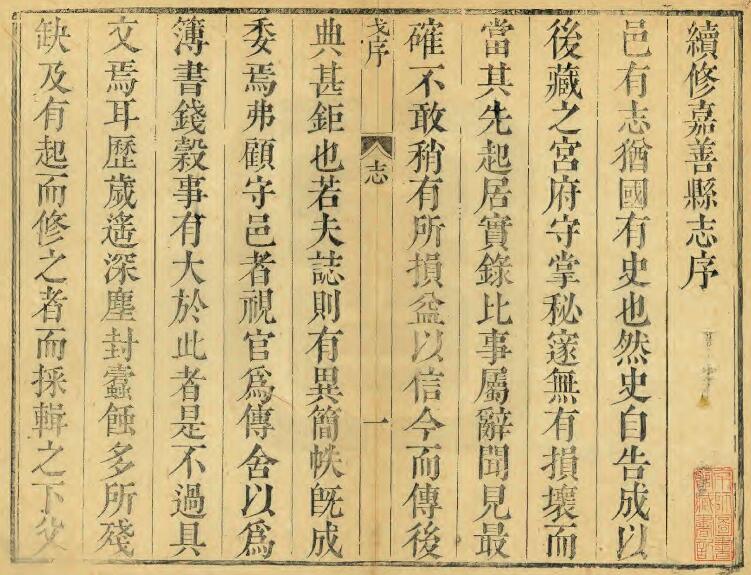 續修嘉善縣志序
邑有志猶國有史也然史自告成以
後藏之宮府守掌秘邃無有損壞而
當其先起居實錄比事屬辭聞見最
確不敢稍有所損益以信今而傳後
戈序
志
一
典甚鉅也若夫誌則有異簡帙既成
委焉弗顧守邑者視官爲傳舍以爲
簿書錢穀事有大於此者是不過具
文焉耳歷歲遙深塵封蠹蝕多所殘
缺及有起而修之者而採輯之下後